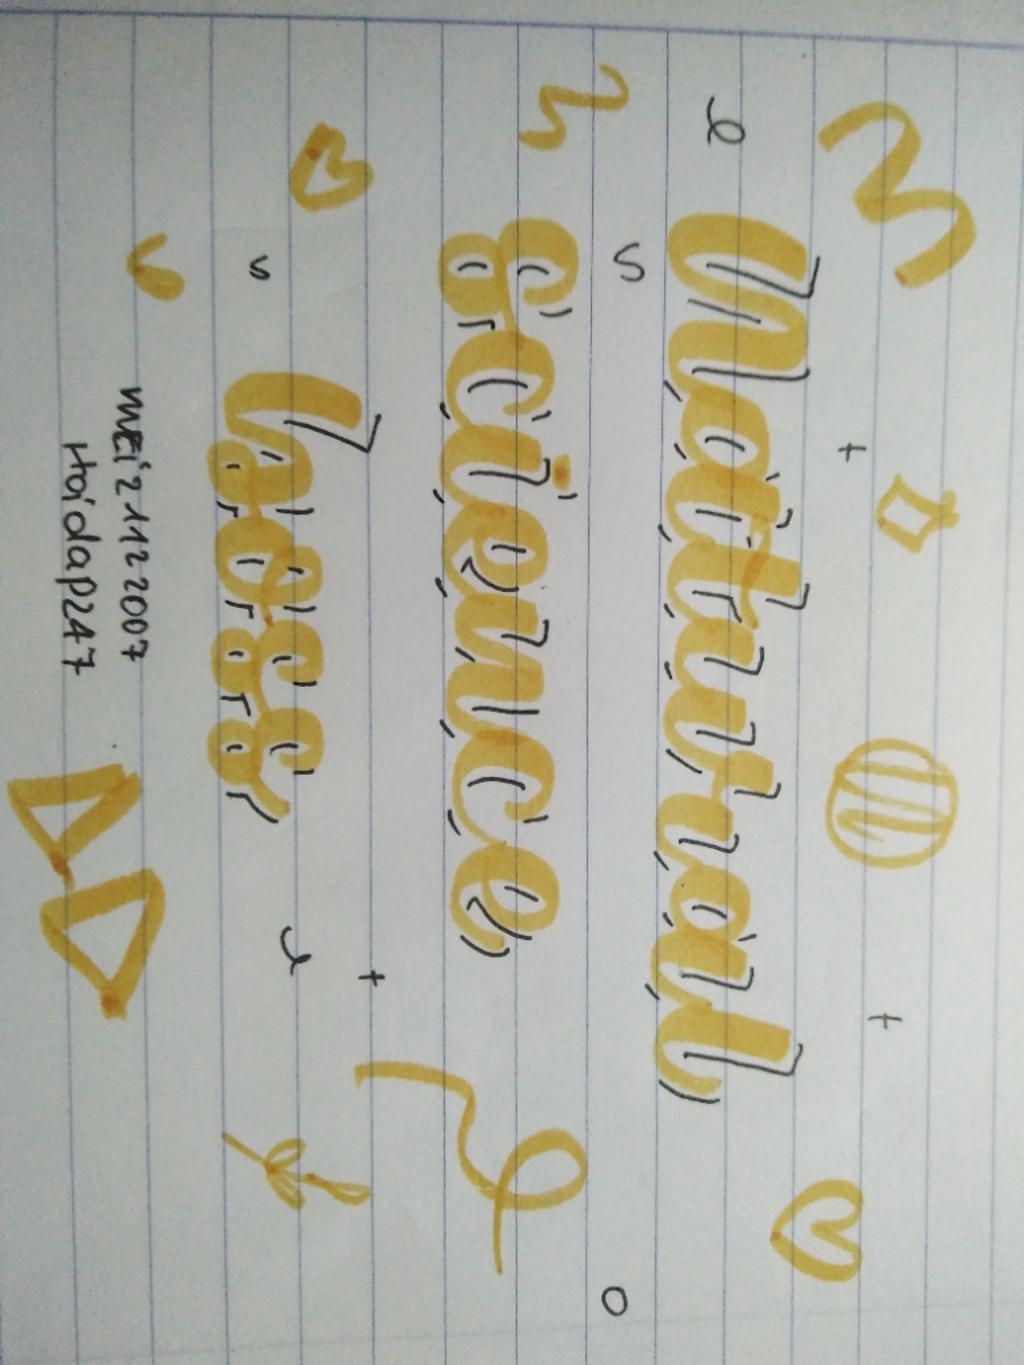 Natural
Science
MEi21122007
Hoidap247